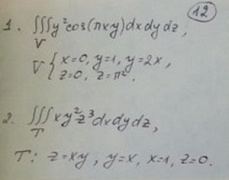 12
1. ∭y²cos(πxy)dxdydz,
V
V { x=0, y=1, y=2x,
z=0, z=π².
2. ∭xy²z³dxdydz,
T
T: z=xy, y=x, x=1, z=0.